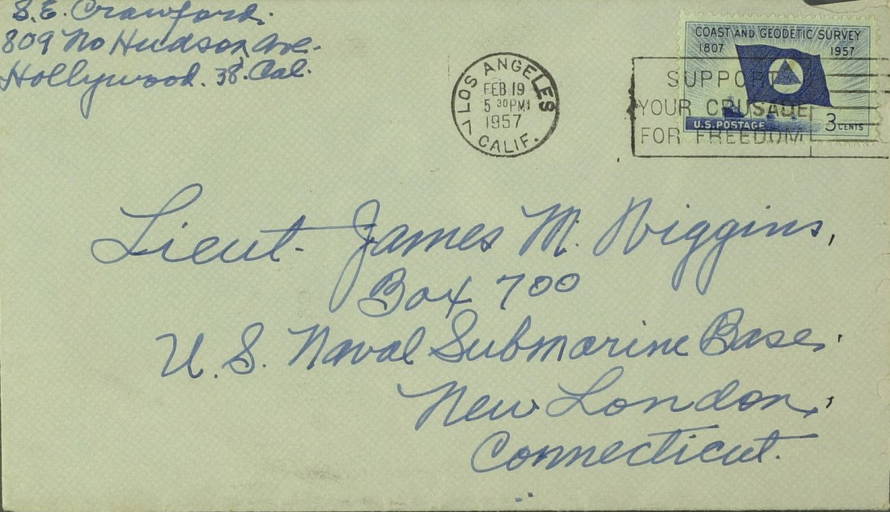 S. E. Crawford.
809 No Hudson Ave.
Hollywood. 38. Cal.
LOS ANGELES
FEB 19
5 30 PM
1957
CALIF.
SUPPORT
YOUR CRUSADE
FOR FREEDOM
COAST AND GEODETIC SURVEY
1807 1957
U.S. POSTAGE 3 CENTS
Lieut. James M. Wiggins,
Box 700
U. S. Naval Submarine Base,
New London,
Connecticut.